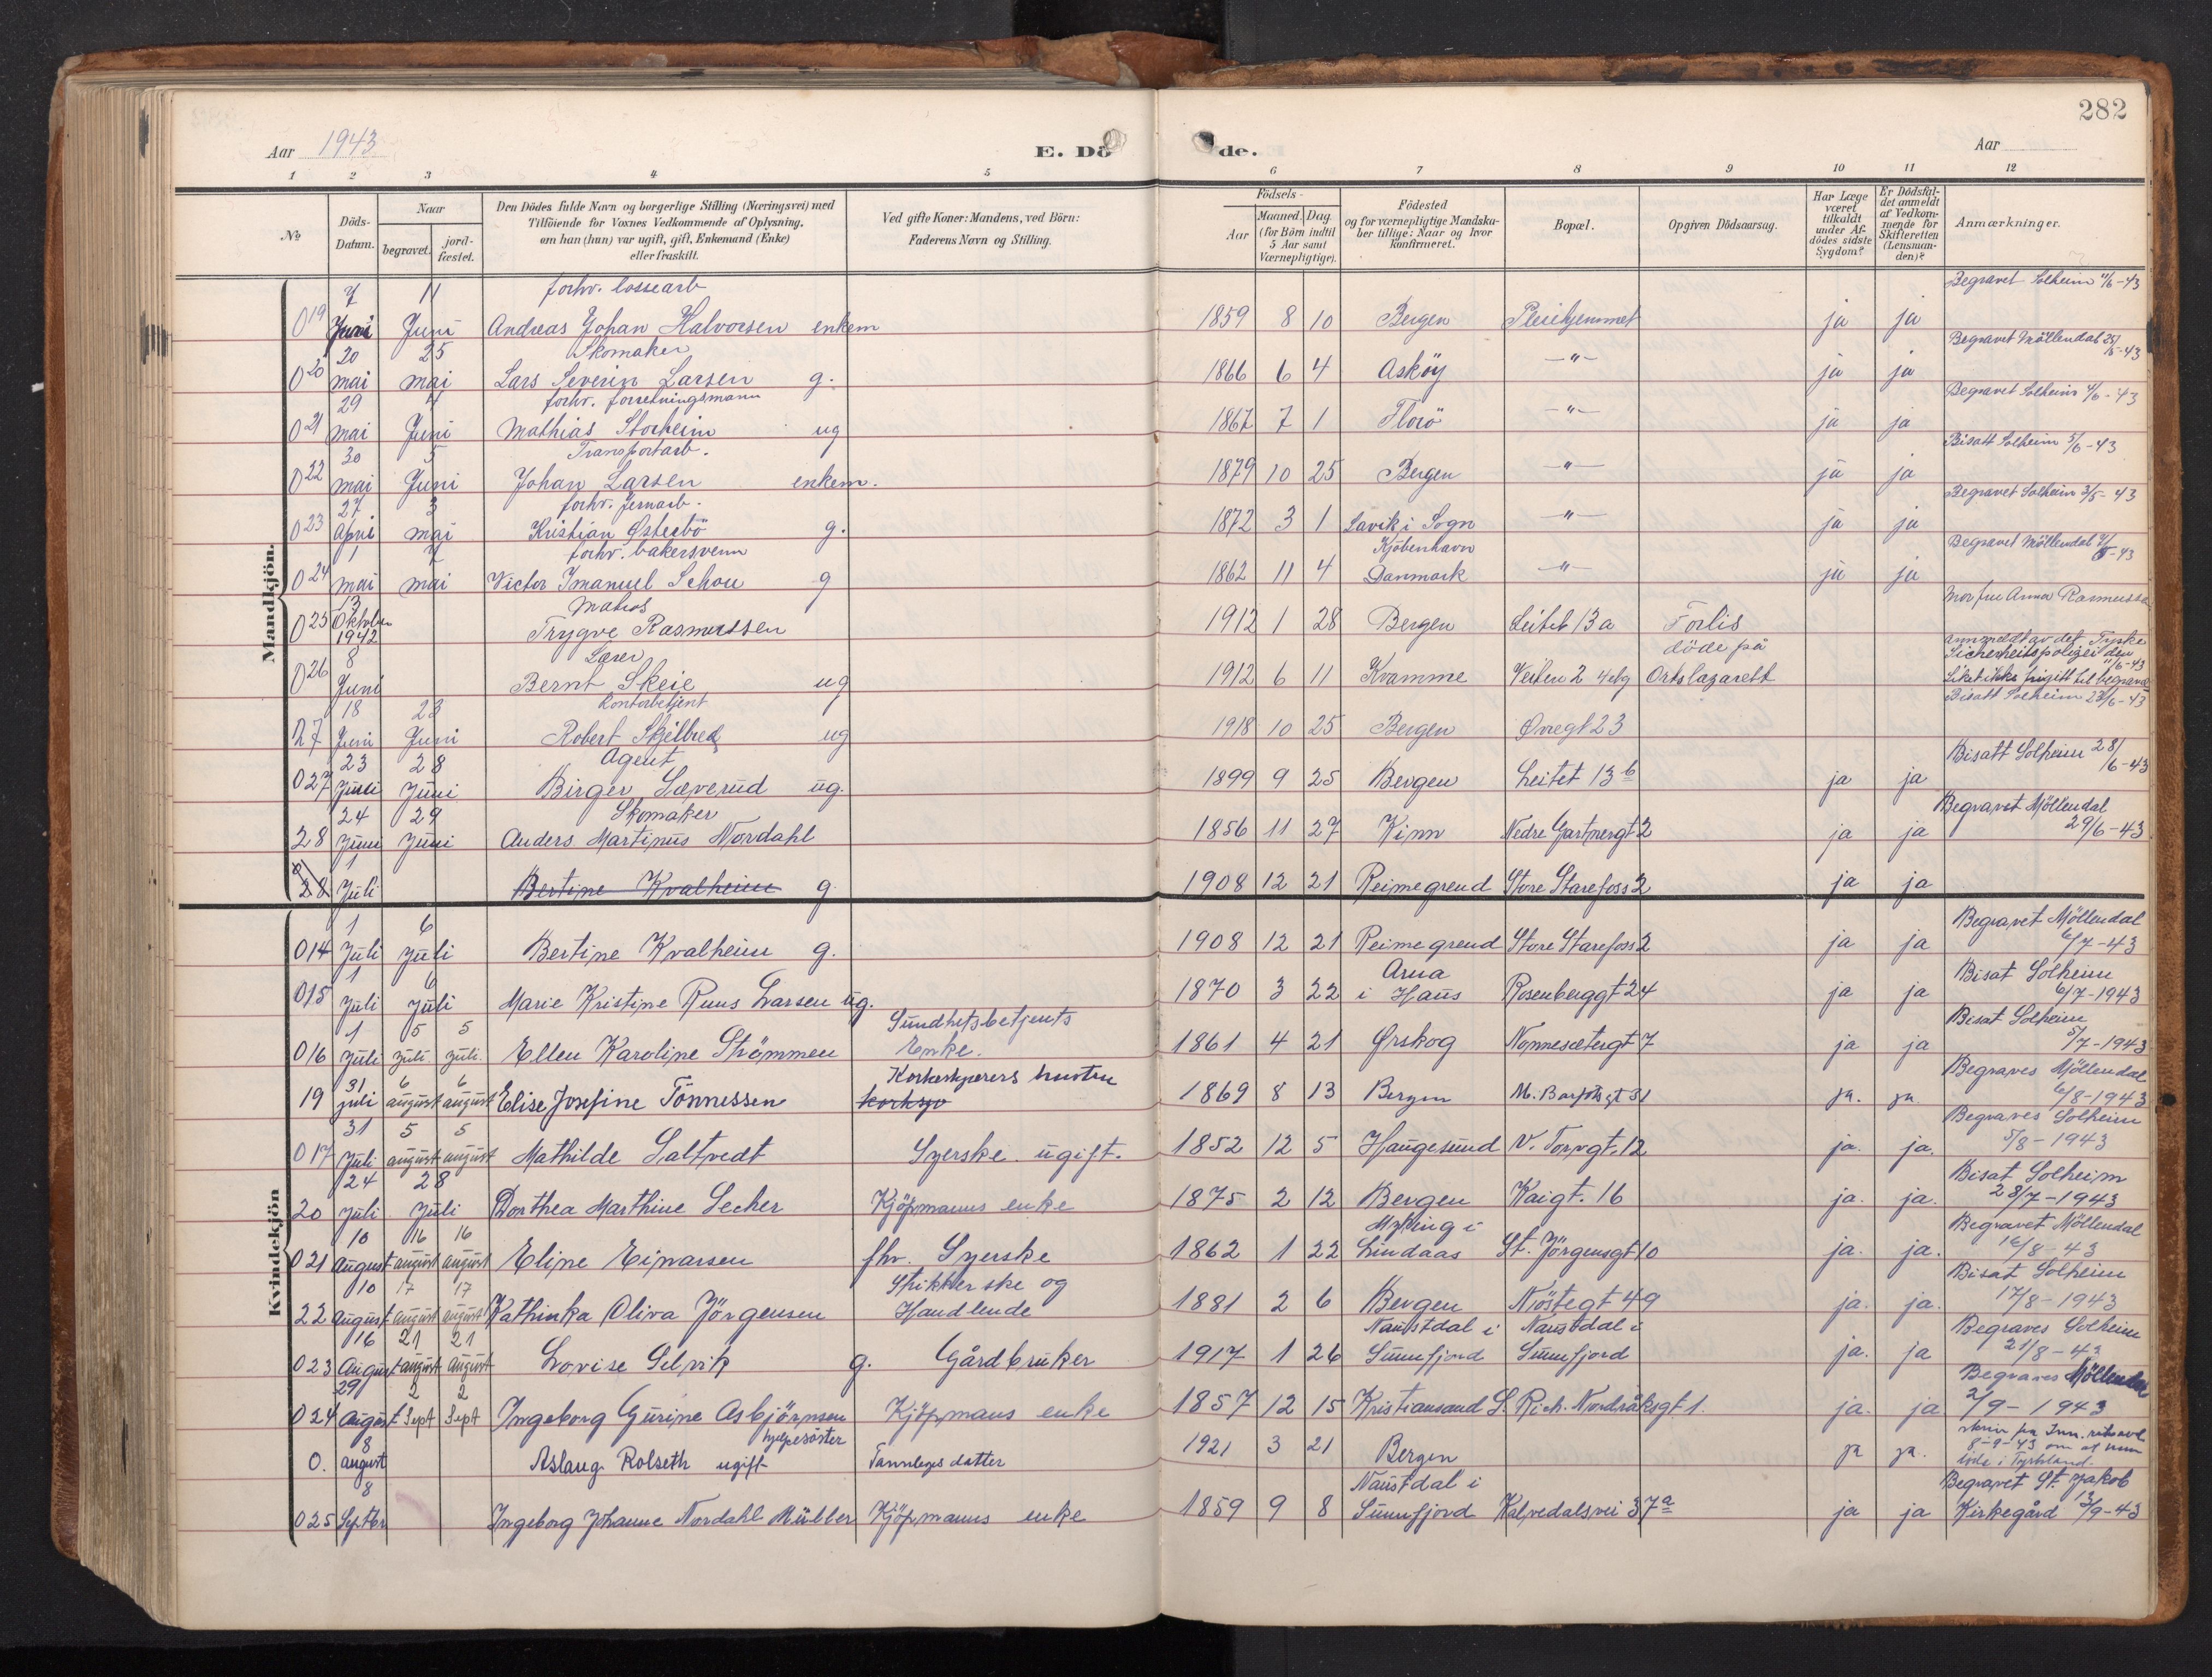 282
Aar 1943
E. Dö de.
Aar
1 2 3 4 5 6 7 8 9 10 11 12
№
Döds-Datum.
Naar
begravet.
jord-fæstet.
Den Dödes fulde Navn og borgerlige Stilling (Næringsvei) med
Tilföiende for Voxnes Vedkommende af Oplysning,
om han (hun) var ugift, gift, Enkemand (Enke)
eller fraskilt.
Ved gifte Koner: Mandens, ved Börn:
Faderens Navn og Stilling.
Födsels-
Aar
Maaned. Dag.
(for Börn indtil
5 Aar samt
Værnepligtige).
Födested
og for værnepligtige Mandska-
ber tillige: Naar og hvor
konfirmeret.
Bopæl.
Opgiven Dödsaarsag.
Har Læge
været
tilkaldt
under Af-
dödes sidste
Sygdom?
Er Dödsfal-
det anmeldt
af Vedkom-
mende for
Skifteretten
(Lensman-
den)?
Anmærkninger.
Mandkjön.
7 11 forhv. lossearb Begravet Solheim 11/6-43
019 Juni Juni Andreas Johan Halvorsen enkem 1859 8 10 Bergen Pleiehjemmet ja ja
20 25 Skomaker Begravet Möllendal 25/5-43
020 mai mai Lars Severin Larsen g. 1866 6 4 Asköy -"- ja ja
29 4 forhv. forretningsmann Begravet Solheim 4/6-43
021 mai Juni Mathias Storheim ug 1867 7 1 Florö -"- ja ja
30 5 Transportarb. Bisatt Solheim 5/6-43
022 mai Juni Johan Larsen enkem. 1879 10 25 Bergen -"- ja ja
27 3 forhv. jernarb. Begravet Solheim 3/5-43
023 April mai Kristian Østerbö g. 1872 3 1 Lavik i Sogn -"- ja ja
1 7 forhv. bakersvenn Kjöbenhavn Begravet Möllendal 7/5-43
024 mai mai Victor Imanuel Schou g 1862 11 4 Danmark -"- ja ja
13 Matros Mor fru Anna Rasmussen
025 Oktober 1942 Trygve Rasmussen 1912 1 28 Bergen Leitet 13a Forlis
8 Lærer döde på anmeldt av det Tyske Sicherheitspolizei den 11/6-43
026 Juni Bernt Skeie ug 1912 6 11 Kvamme Veiten 2 4etg Ortslazarett Liket ikke frigitt til begravel
18 23 Kontorbetjent Bisatt Solheim 23/6-43
27 Juni Juni Robert Skjelbred ug 1918 10 25 Bergen Øvregt 23
23 28 Agent Bisatt Solheim 28/6-43
027 Juni Juni Birger Sæverud ug. 1899 9 25 Bergen Leitet 13 b ja ja
24 29 Skomaker Begravet Möllendal 29/6-43
28 Juni Juni Anders Martinus Nordahl 1856 11 27 Kinn Nedre Gartnergt 2 ja ja
28 1 Juli Bertine Kvalheim g. 1908 12 21 Reimegrend Store Starefoss 2 ja ja
Kvindekjön
1 6 Begravet Möllendal
014 Juli Juli Bertine Kvalheim g. 1908 12 21 Reimegrend Store Starefoss 2 ja ja 6/7-43
1 6 Arna Bisat Solheim
015 Juli Juli Marie Kristine Ruus Larsen ug. 1870 3 22 i Haus Rosenberggt 24 ja ja 6/7-1943
1 5 5 Sundhetsbetjents Bisat Solheim
016 Juli Juli Juli. Ellen Karoline Strömmen Enke. 1861 4 21 Ørskog Nonnesetergt 7 ja ja 5/7-1943
31 6 6 Korkskjærers hustru Begraves Möllendal
19 juli august august Elise Josefine Tönnessen korksjö 1869 8 13 Bergen M. Barfotsgt 31 ja. ja. 6/8-1943
31 5 5 Begraves Solheim
017 Juli august august Mathilde Saltvedt Syerske ugift. 1852 12 5 Haugesund V. Torvgt. 12 ja. ja. 5/8-1943
24 28 Bisat Solheim
20 Juli Juli Dorthea Marthine Secher Kjöpmanns enke 1875 2 12 Bergen Kaigt. 16 ja. ja. 28/7-1943
10 16 16 Myking i Begravet Möllendal
021 August august august Eline Einarsen fhv. Syerske 1862 1 22 Lindaas St. Jörgensgt 10 ja. ja. 16/8-43
10 17 17 Strikkerske og Bisat Solheim
22 August august august Kathinka Oliva Jörgensen Handlende 1881 2 6 Bergen Nöstegt 49 ja. ja. 17/8-1943
16 21 21 Naustdal i Naustdal i Begraves Solheim
023 August august august Lovise Selvik g. Gårdbruker 1917 1 26 Sunnfjord Sunnfjord ja. ja 21/8-43
29 2 2 Begraves Möllendal
024 August Sept Sept Ingeborg Gurine Asbjörnsen Kjöpmans enke 1857 12 15 Kristiansand S. Rich. Nordråksgt 1. ja. ja 2/9-1943
8 hjelpesöster skriv fra Inn.
0. august Aslaug Rolseth ugift Tannleges datter 1921 3 21 Bergen ja ja. 8-9-43 om at hun döde i Tyskland.
8 Naustdal i Begravet St. Jakob
025 Septbr Ingeborg Johanne Nordahl Müller Kjöpmanns enke 1859 9 8 Sunnfjord Kalvedalsvei 37a ja ja Kirkegård 13/9-43